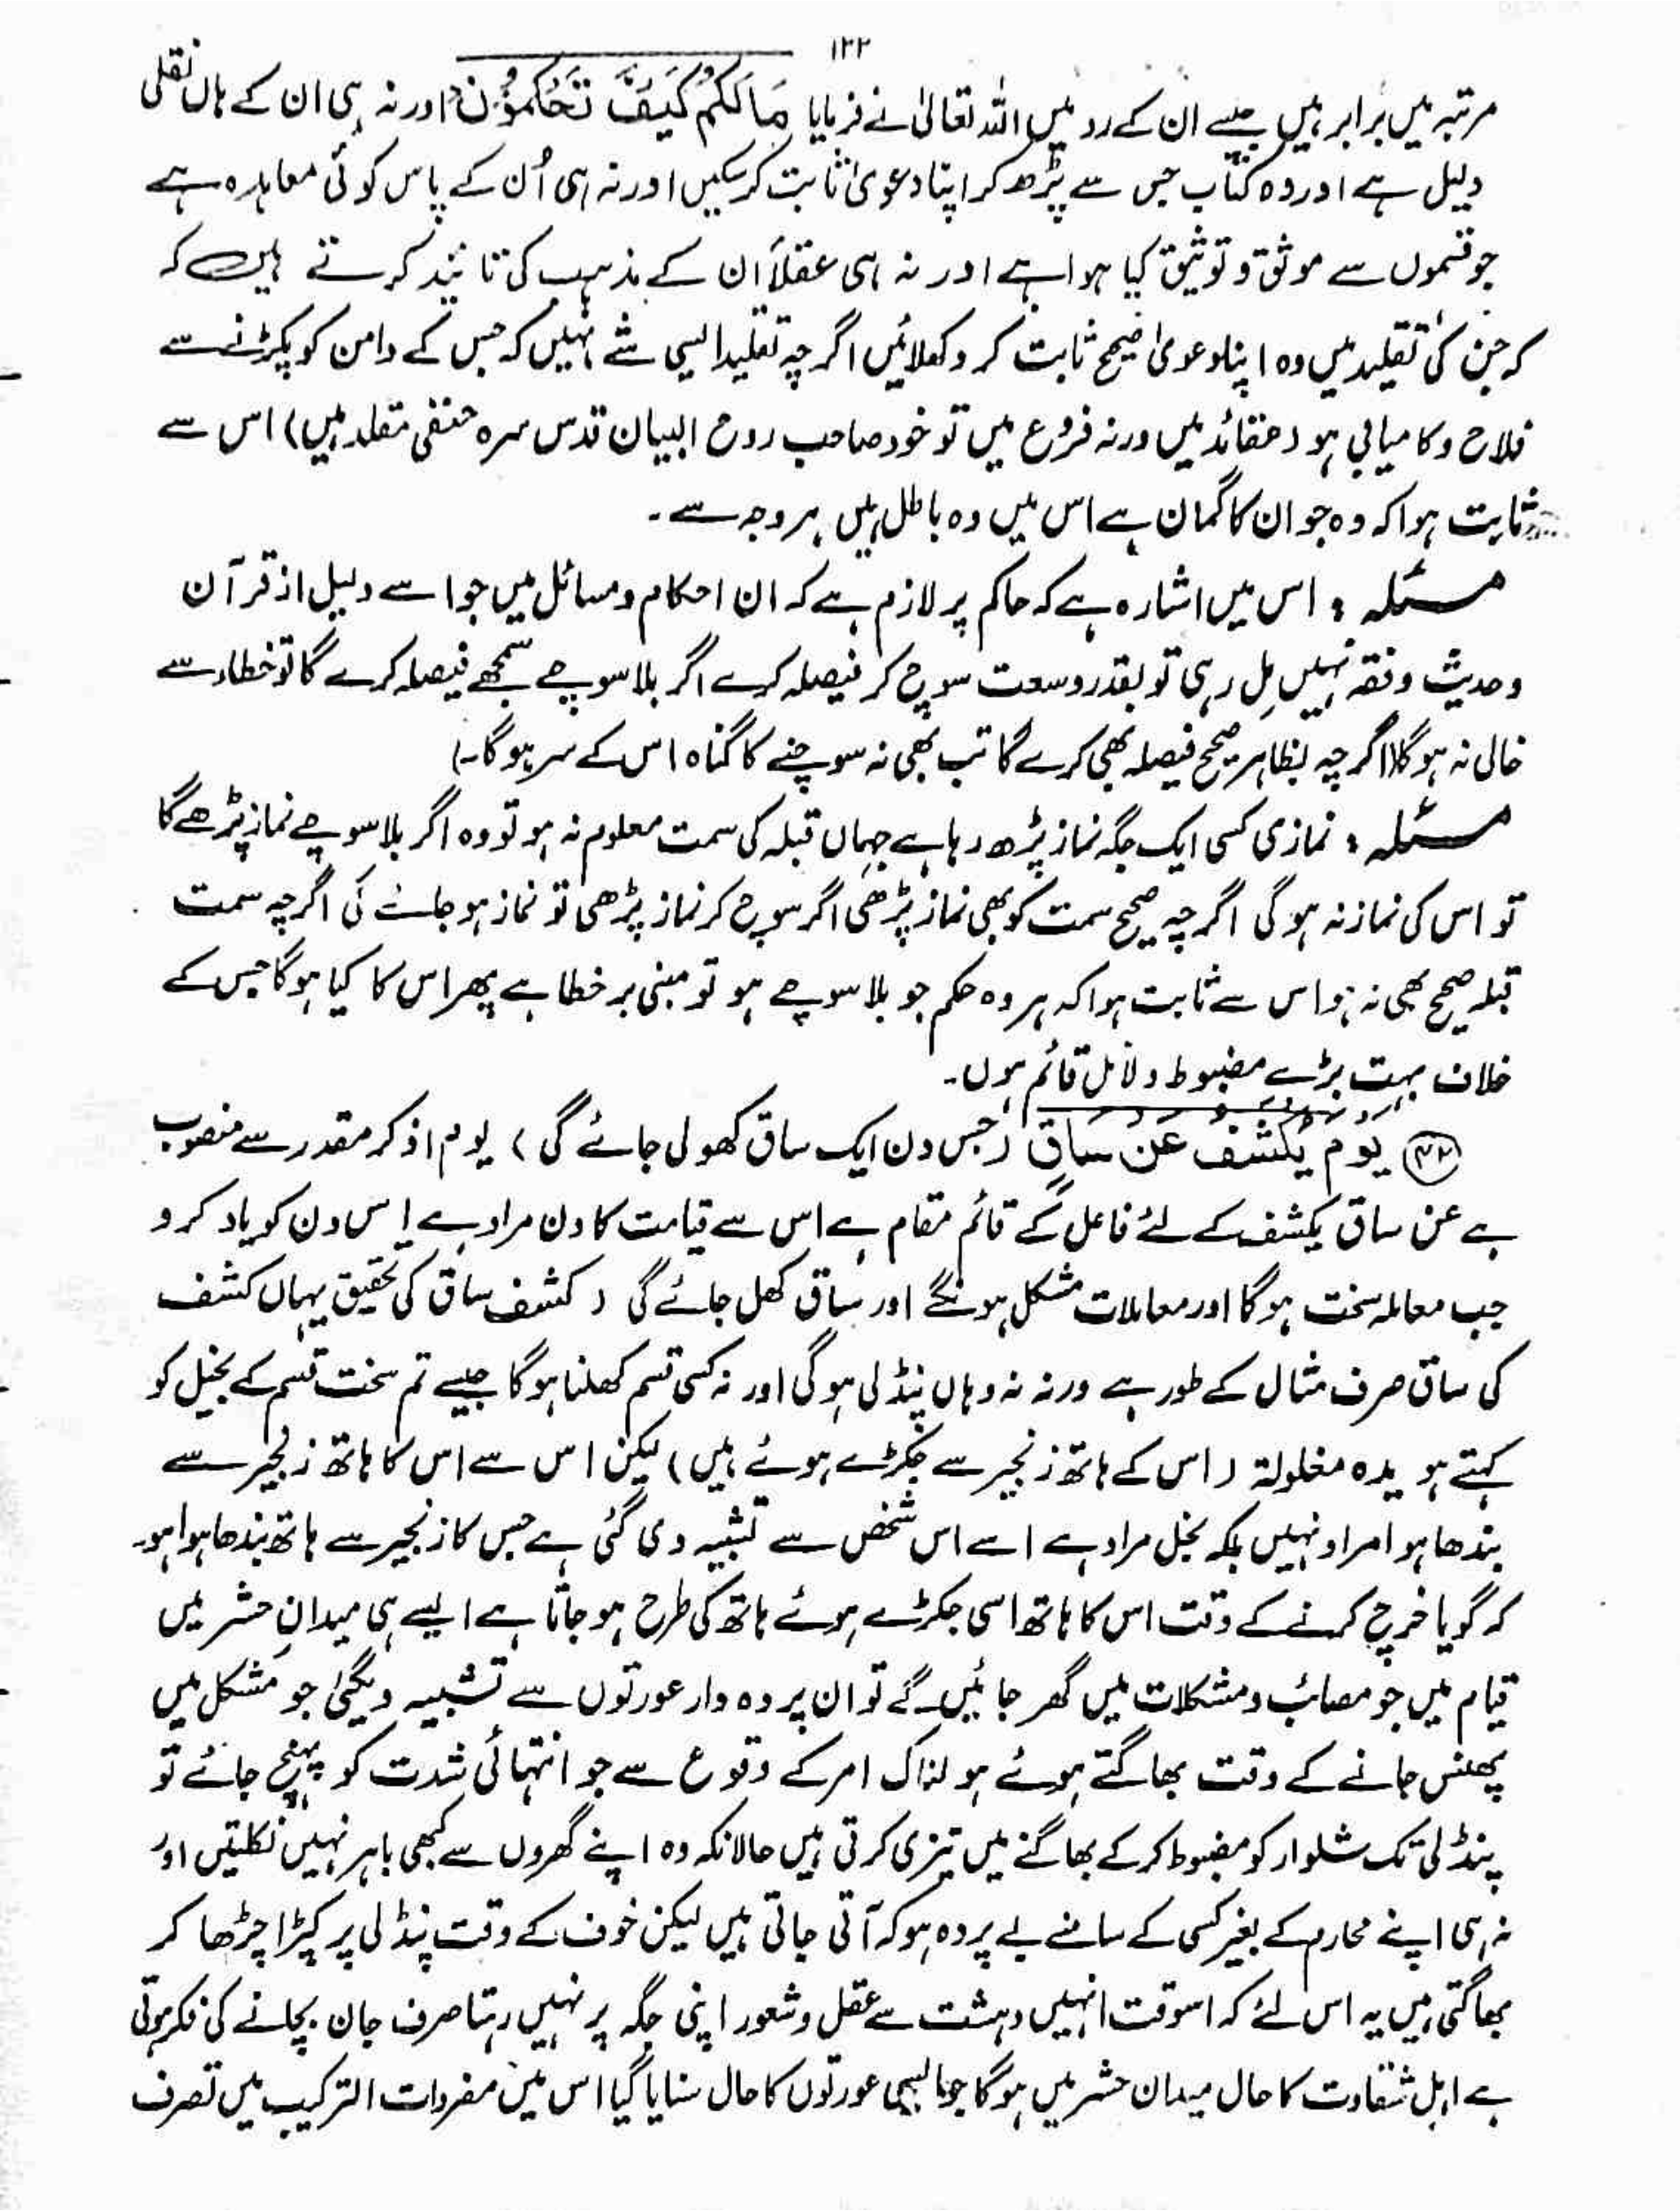 ۱۲۲
مرتبہ میں برابر ہیں جیسے ان کے رد میں اللہ تعالیٰ نے فرمایا مَا لَكُمْ كَيْفَ تَحْكُمُوْنَ اور نہ ہی ان کے ہاں نقلی
دلیل ہے اور وہ کتاب جس سے پڑھ کر اپنا دعویٰ ثابت کر سکیں اور نہ ہی اُن کے پاس کوئی معاہدہ ہے
جو قسموں سے موثق و توثیق کیا ہوا ہے اور نہ ہی عقلاً ان کے مذہب کی تائید کرتے ہیں کہ
کہ جن کی تقلید میں وہ اپنا دعویٰ صحیح ثابت کر دکھلائیں اگرچہ تقلید ایسی شے نہیں کہ جس کے دامن کو پکڑنے سے
فلاح و کامیابی ہو (عقائد میں ورنہ فروع میں تو خود صاحب روح البیان قدس سرہ حنفی مقلد ہیں) اس سے
ثابت ہوا کہ وہ جو ان کا گمان ہے اس میں وہ باطل ہیں ہر وجہ سے۔
مسئلہ : اس میں اشارہ ہے کہ حاکم پر لازم ہے کہ ان احکام و مسائل میں جو اسے دلیل از قرآن
و حدیث و فقہ نہیں مل رہی تو بقدر وسعت سوچ کر فیصلہ کرے اگر بلا سوچے سمجھے فیصلہ کرے گا تو خطاء سے
خالی نہ ہوگا (اگرچہ بظاہر صحیح فیصلہ بھی کرے گا تب بھی نہ سوچنے کا گناہ اس کے سر ہوگا۔)
مسئلہ : نمازی کسی ایک جگہ نماز پڑھ رہا ہے جہاں قبلہ کی سمت معلوم نہ ہو تو وہ اگر بلا سوچے نماز پڑھے گا
تو اس کی نماز نہ ہوگی اگرچہ صحیح سمت کو بھی نماز پڑھی اگر سوچ کر نماز پڑھی تو نماز ہو جائے گی اگرچہ سمت
قبلہ صحیح بھی نہ ہو اس سے ثابت ہوا کہ ہر وہ حکم جو بلا سوچے ہو تو مبنی بر خطا ہے پھر اس کا کیا ہوگا جس کے
خلاف بہت بڑے مضبوط دلائل قائم ہوں۔
(۴۲) يَوْمَ يُكْشَفُ عَنْ سَاقٍ (جس دن ایک ساق کھولی جائے گی) یوم اذکر مقدر سے منصوب
ہے عن ساق یکشف کے لئے فاعل کے قائم مقام ہے اس سے قیامت کا دن مراد ہے اس دن کو یاد کرو
جب معاملہ سخت ہوگا اور معاملات مشکل ہونگے اور ساق کھل جائے گی (کشف ساق کی تحقیق یہاں کشف
کی ساق صرف مثال کے طور ہے ورنہ نہ وہاں پنڈلی ہوگی اور نہ کسی قسم کھلنا ہوگا جیسے تم سخت قسم کے بخیل کو
کہتے ہو یدہ مغلولة (اس کے ہاتھ زنجیر سے جکڑے ہوئے ہیں) لیکن اس سے اس کا ہاتھ زنجیر سے
بندھا ہوا مراد نہیں بلکہ بخل مراد ہے اسے اس شخص سے تشبیہ دی گئی ہے جس کا زنجیر سے ہاتھ بندھا ہوا ہو۔
کہ گویا خرچ کرنے کے وقت اس کا ہاتھ اسی جکڑے ہوئے ہاتھ کی طرح ہو جاتا ہے ایسے ہی میدانِ حشر میں
قیام میں جو مصائب و مشکلات میں گھر جائیں گے تو ان پردہ دار عورتوں سے تشبیہ دیگئی جو مشکل میں
پھنس جانے کے وقت بھاگتے ہوئے ہولناک امر کے وقوع سے جو انتہائی شدت کو پہنچ جائے تو
پنڈلی تک شلوار کو مضبوط کر کے بھاگنے میں تیزی کرتی ہیں حالانکہ وہ اپنے گھروں سے کبھی باہر نہیں نکلتیں اور
نہ ہی اپنے محارم کے بغیر کسی کے سامنے بے پردہ ہو کہ آتی جاتی ہیں لیکن خوف کے وقت پنڈلی پر کپڑا چڑھا کر
بھاگتی ہیں یہ اس لئے کہ اسوقت انہیں دہشت سے عقل و شعور اپنی جگہ پر نہیں رہتا صرف جان بچانے کی فکر ہوتی
ہے اہل شقاوت کا حال میدان حشر میں ہوگا جو ایسی عورتوں کا حال سنایا گیا اس میں مفردات الترکیب میں تصرف